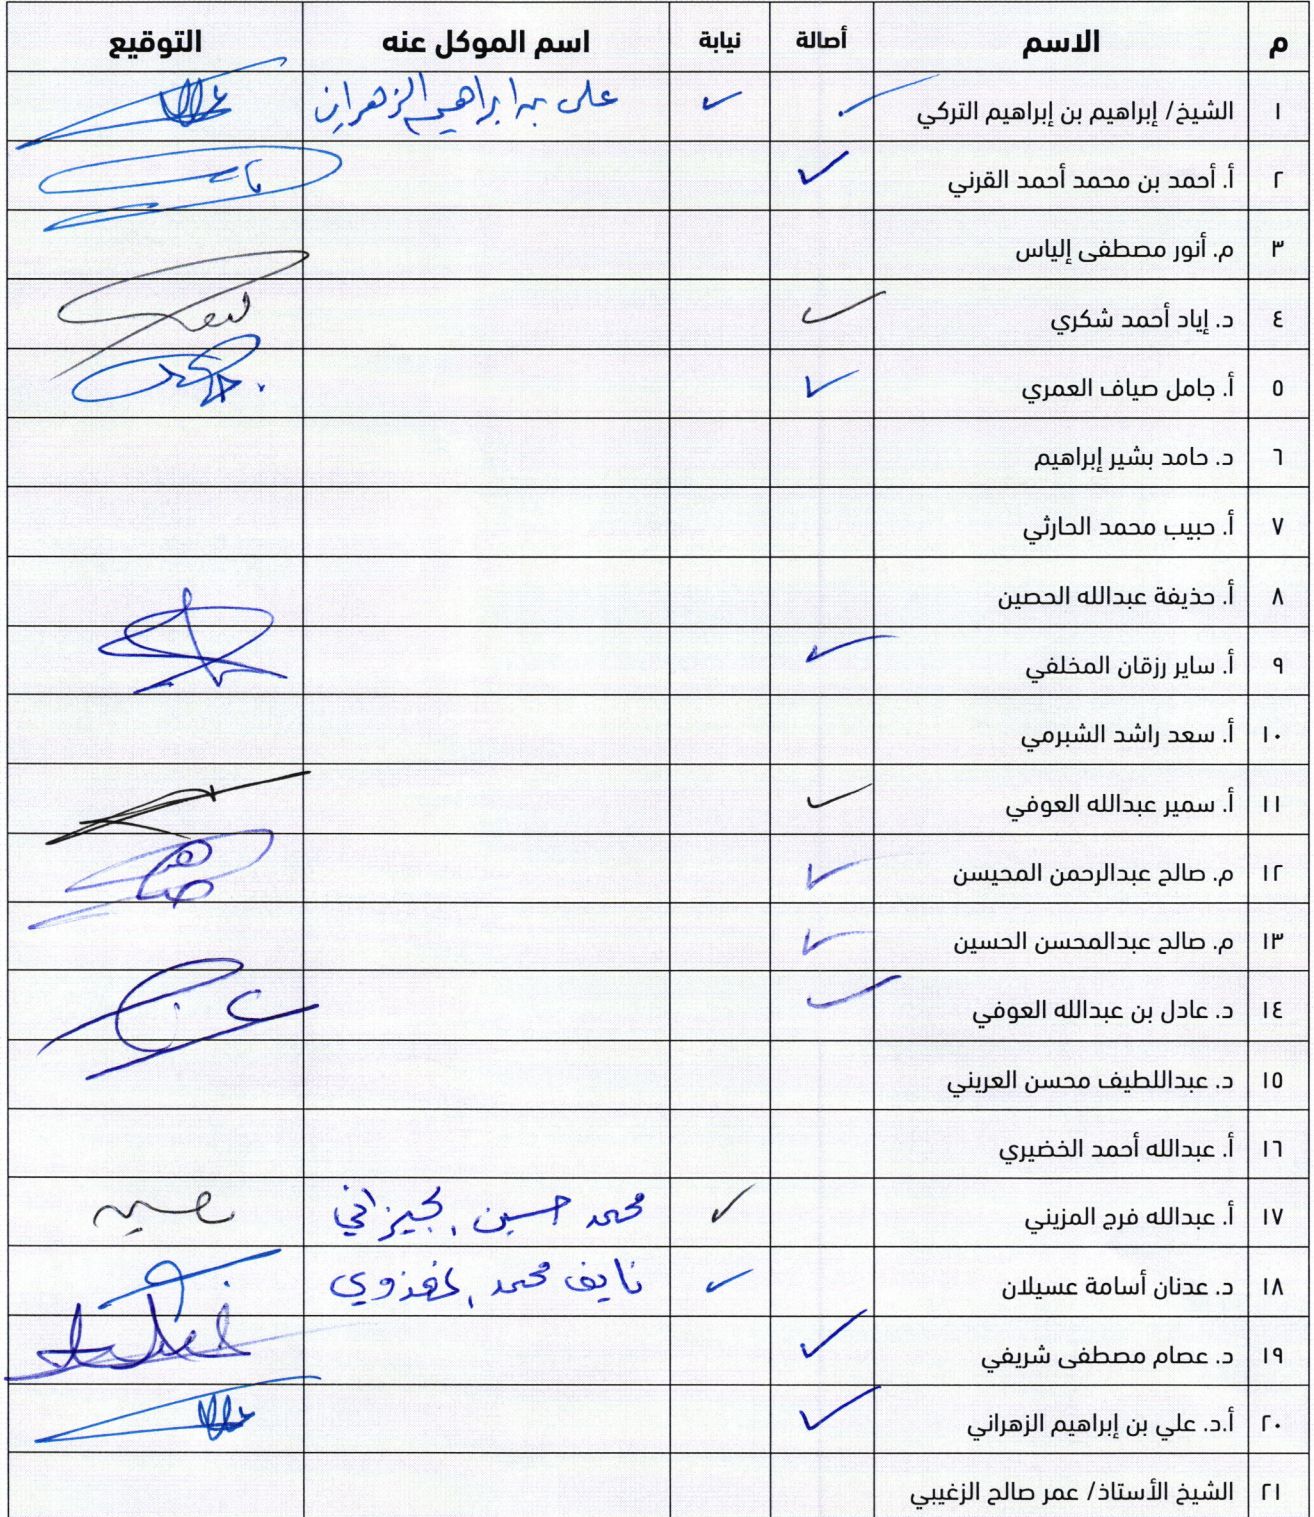 م الاسم أصالة نيابة اسم الموكل عنه التوقيع
١ الشيخ/ إبراهيم بن إبراهيم التركي ✓ ✓ علي بن ابراهيم الزهراني
٢ أ. أحمد بن محمد أحمد القرني ✓
٣ م. أنور مصطفى إلياس
٤ د. إياد أحمد شكري ✓
٥ أ. جامل صياف العمري ✓
٦ د. حامد بشير إبراهيم
٧ أ. حبيب محمد الحارثي
٨ أ. حذيفة عبدالله الحصين
٩ أ. ساير رزقان المخلفي ✓
١٠ أ. سعد راشد الشبرمي
١١ أ. سمير عبدالله العوفي ✓
١٢ م. صالح عبدالرحمن المحيسن ✓
١٣ م. صالح عبدالمحسن الحسين ✓
١٤ د. عادل بن عبدالله العوفي ✓
١٥ د. عبداللطيف محسن العريني
١٦ أ. عبدالله أحمد الخضيري
١٧ أ. عبدالله فرج المزيني ✓ محمد حسين الجيزاني
١٨ د. عدنان أسامة عسيلان ✓ نايف محمد
١٩ د. عصام مصطفى شريفي ✓
٢٠ أ.د. علي بن إبراهيم الزهراني ✓
٢١ الشيخ الأستاذ/ عمر صالح الزغيبي